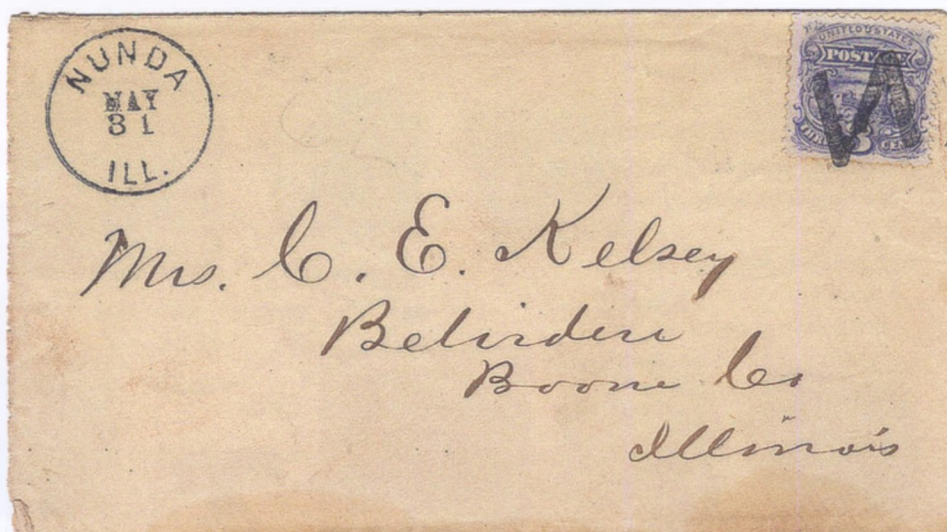 NUNDA
MAY
31
ILL.
UNITED STATES
POSTAGE
THREE 3 CENTS
N
Mrs. C. E. Kelsey
Belvidere
Boone Co
Illinois